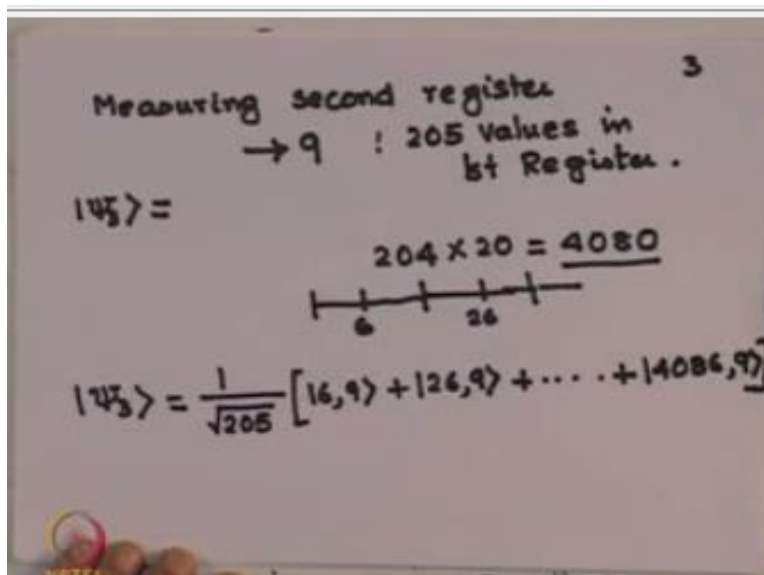 3
Measuring second register
→ 9 : 205 values in
1st Register.
|ψ₃⟩ =
204 × 20 = 4080
6 26
|ψ₃⟩ = 1/√205 [|6,9⟩ + |26,9⟩ + .... + |4086,9⟩]